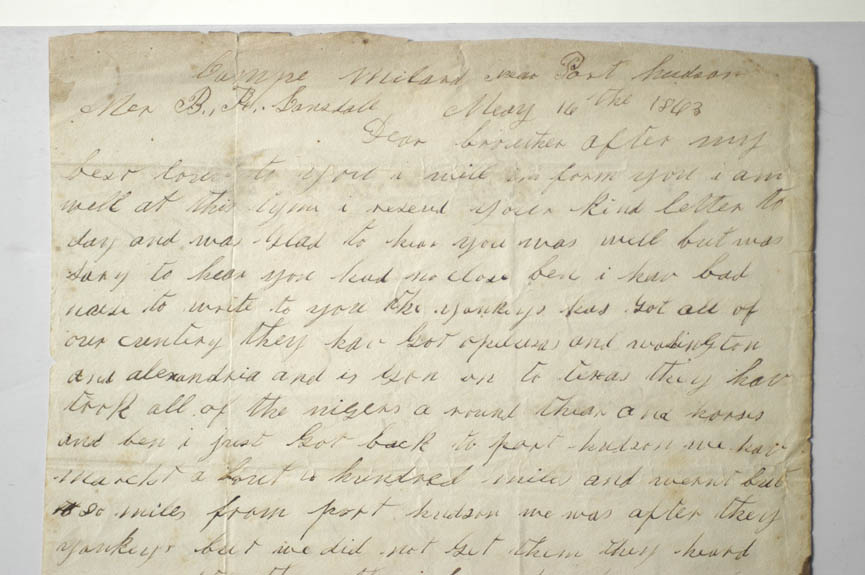 Campe Milard near Port hudson
Mer B. H. Lonsdall Meay 16 the 1863
Dear brouther after my
best love to you i will in form you i am
well at this tym i reseved your kind letter to
day and was Glad to hear you was well but was
sary to hear you had no close ben i hav bad
nuse to write to you the yankeys has Got all of
our cuntery they hav Got opelusas and wasington
and alexandria and is Gon on to texas they hav
took all of the nigers a round thear and horses
and ben i just Got back to port hudson we hav
marcht a bout a hundred miles and wernt but
50 miles from port hudson we was after they
yankeys but we did not Get them they heard